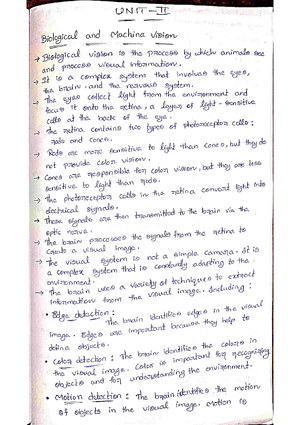 UNIT-II
Biological and Machine Vision
→ Biological vision is the process by which animals see
and process visual information.
→ It is a complex system that involves the eyes,
the brain, and the nervous system.
→ The eyes collect light from the environment and
focus it onto the retina, a layer of light-sensitive
cells at the back of the eye.
→ The retina contains two types of photoreceptor cells:
rods and cones.
→ Rods are more sensitive to light than cones, but they do
not provide color vision.
→ Cones are responsible for color vision, but they are less
sensitive to light than rods.
→ The photoreceptor cells in the retina convert light into
electrical signals.
→ These signals are then transmitted to the brain via the
optic nerve.
→ The brain processes the signals from the retina to
create a visual image.
→ The visual system is not a simple camera. It is
a complex system that is constantly adapting to the
environment.
→ The brain uses a variety of techniques to extract
information from the visual image. Including:
• Edge detection:
The brain identifies edges in the visual
image. Edges are important because they help to
define objects.
• Color detection: The brain identifies the colors in
the visual image. Color is important for recognizing
objects and for understanding the environment.
• Motion detection: The brain identifies the motion
of objects in the visual image. Motion is